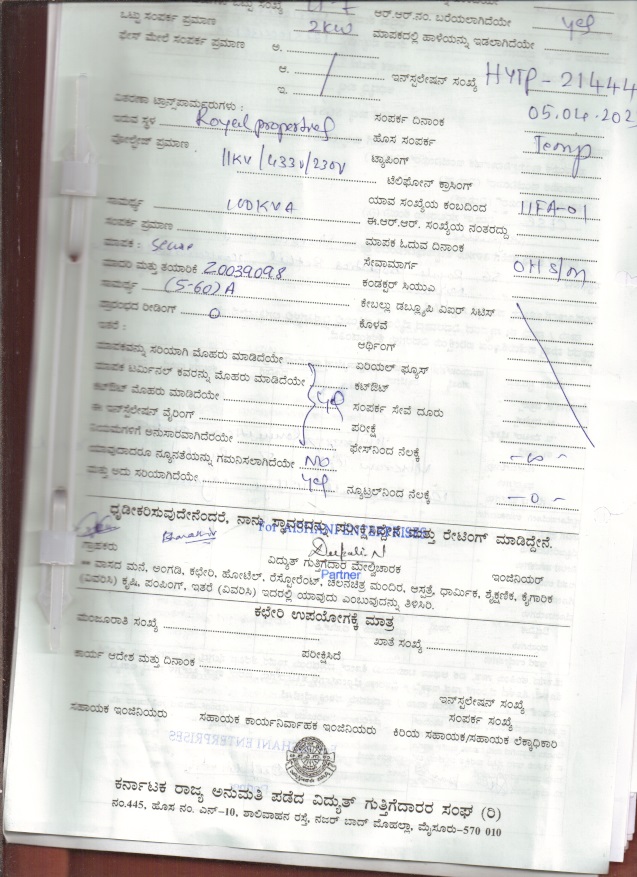 ಒಟ್ಟು ಸಂಪರ್ಕ ಪ್ರಮಾಣ 2KW ಆರ್.ಆರ್.ನಂ. ಬರೆಯಲಾಗಿದೆಯೇ Yes
ಫೇಸ್ ಮೇಲೆ ಸಂಪರ್ಕ ಪ್ರಮಾಣ ಅ. ಮಾಪಕದಲ್ಲಿ ಹಾಳೆಯನ್ನು ಇಡಲಾಗಿದೆಯೇ
ಆ. ಇನ್‌ಸ್ಟಲೇಷನ್ ಸಂಖ್ಯೆ HYTP-21444
ಇ.
ವಿತರಣಾ ಟ್ರಾನ್ಸ್‌ಫಾರ್ಮರುಗಳು : ಸಂಪರ್ಕ ದಿನಾಂಕ 05.04.202
ಇರುವ ಸ್ಥಳ Royal properties ಹೊಸ ಸಂಪರ್ಕ Temp
ವೋಲ್ಟೇಜ್ ಪ್ರಮಾಣ 11KV/433V/230V ಟ್ಯಾಪಿಂಗ್
ಟೆಲಿಫೋನ್ ಕ್ರಾಸಿಂಗ್
ಸಾಮರ್ಥ್ಯ 100KVA ಯಾವ ಸಂಖ್ಯೆಯ ಕಂಬದಿಂದ
ಸಂಪರ್ಕ ಪ್ರಮಾಣ ಈ.ಆರ್.ಆರ್. ಸಂಖ್ಯೆಯ ನಂತರದ್ದು
ಮಾಪಕ : ಮಾಪಕ ಓದುವ ದಿನಾಂಕ
ಮಾದರಿ ಮತ್ತು ತಯಾರಿಕೆ 20039098 ಸೇವಾಮಾರ್ಗ
ಸಾಮರ್ಥ್ಯ (5-60)A ಕಂಡಕ್ಟರ್ ಸಿಯುಎ
ಪ್ರಾರಂಭದ ರೀಡಿಂಗ್ 0 ಕೇಬಲ್ಲು ಡಬ್ಲ್ಯೂಪಿ ವಿಐರ್ ಸಿಟಿಸ್
ಇತರೆ : ಕೊಳವೆ
ಆರ್ಥಿಂಗ್
ಮಾಪಕವನ್ನು ಸರಿಯಾಗಿ ಮೊಹರು ಮಾಡಿದೆಯೇ ಏರಿಯಲ್ ಫ್ಯೂಸ್
ಮಾಪಕ ಟರ್ಮಿನಲ್ ಕವರನ್ನು ಮೊಹರು ಮಾಡಿದೆಯೇ ಕಟ್‌ಔಟ್
ಕಟ್‌ಔಟ್ ಮೊಹರು ಮಾಡಿದೆಯೇ Yes ಸಂಪರ್ಕ ಸೇವೆ ದೂರು
ಈ ಇನ್‌ಸ್ಟಲೇಷನ್ ವೈರಿಂಗ್ ಪರೀಕ್ಷೆ
ನಿಯಮಗಳಿಗೆ ಅನುಸಾರವಾಗಿದೆಯೇ ಫೇಸ್‌ನಿಂದ ನೆಲಕ್ಕೆ
ಯಾವುದಾದರೂ ನ್ಯೂನತೆಯನ್ನು ಗಮನಿಸಲಾಗಿದೆಯೇ NO
ಮತ್ತು ಅದು ಸರಿಯಾಗಿದೆಯೇ Yes ನ್ಯೂಟ್ರಲ್‌ನಿಂದ ನೆಲಕ್ಕೆ -0-
ಧೃಡೀಕರಿಸುವುದೇನೆಂದರೆ, ನಾನು ಸ್ಥಾವರವನ್ನು ಪರೀಕ್ಷಿಸಿದ್ದೇನೆ ಮತ್ತು ರೇಟಿಂಗ್ ಮಾಡಿದ್ದೇನೆ.
For AISHANI ENTERPRISES
Deepali N
ಗ್ರಾಹಕರು ವಿದ್ಯುತ್ ಗುತ್ತಿಗೆದಾರ ಮೇಲ್ವಿಚಾರಕ ಇಂಜಿನಿಯರ್
Partner
** ವಾಸದ ಮನೆ, ಅಂಗಡಿ, ಕಛೇರಿ, ಹೋಟೆಲ್, ರೆಸ್ಟೋರೆಂಟ್, ಚಲನಚಿತ್ರ ಮಂದಿರ, ಆಸ್ಪತ್ರೆ, ಧಾರ್ಮಿಕ, ಶೈಕ್ಷಣಿಕ, ಕೈಗಾರಿಕ
(ವಿವರಿಸಿ) ಕೃಷಿ, ಪಂಪಿಂಗ್, ಇತರೆ (ವಿವರಿಸಿ) ಇದರಲ್ಲಿ ಯಾವುದು ಎಂಬುವುದನ್ನು ತಿಳಿಸಿರಿ.
ಕಛೇರಿ ಉಪಯೋಗಕ್ಕೆ ಮಾತ್ರ
ಮಂಜೂರಾತಿ ಸಂಖ್ಯೆ ಖಾತೆ ಸಂಖ್ಯೆ
ಪರೀಕ್ಷಿಸಿದೆ
ಕಾರ್ಯ ಆದೇಶ ಮತ್ತು ದಿನಾಂಕ
ಇನ್‌ಸ್ಟಲೇಷನ್ ಸಂಖ್ಯೆ
ಸಂಪರ್ಕ ಸಂಖ್ಯೆ
ಸಹಾಯಕ ಇಂಜಿನಿಯರು ಸಹಾಯಕ ಕಾರ್ಯನಿರ್ವಾಹಕ ಇಂಜಿನಿಯರು ಕಿರಿಯ ಸಹಾಯಕ/ಸಹಾಯಕ ಲೆಕ್ಕಾಧಿಕಾರಿ
ಕರ್ನಾಟಕ ರಾಜ್ಯ ಅನುಮತಿ ಪಡೆದ ವಿದ್ಯುತ್ ಗುತ್ತಿಗೆದಾರರ ಸಂಘ (ರಿ)
ನಂ.445, ಹೊಸ ನಂ. ಎನ್-10, ಶಾಲಿವಾಹನ ರಸ್ತೆ, ನಜರ್ ಬಾದ್ ಮೊಹಲ್ಲಾ, ಮೈಸೂರು-570 010